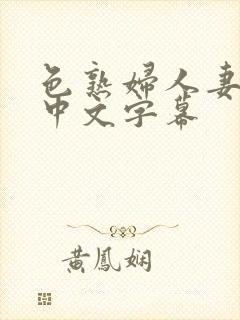 色熟婦人妻
中文字幕
黃鳳娴